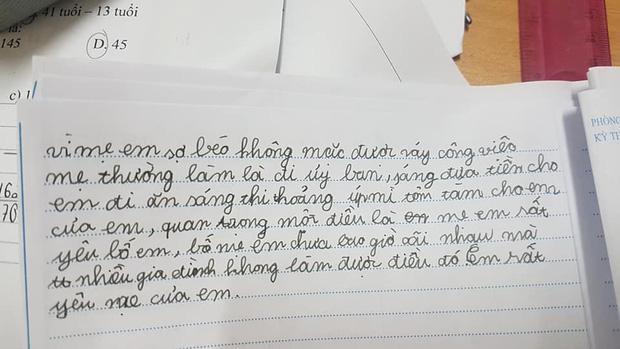 41 tuổi – 13 tuổi
là:
145
D. 45
c) 1
160
70
PHÒNG
KỲ TH
vì mẹ em sợ béo không mặc được váy công việc
mẹ thường làm là đi ủy ban, sáng đưa tiền cho
em đi ăn sáng thi thoảng úp mì tôm tằm cho em
của em, quan tương mỗi điều là em mẹ em rất
yêu bố em, bố mẹ em chưa bao giờ cãi nhau mà
nhiều gia đình không làm được điều đó Em rất
yêu mẹ của em.